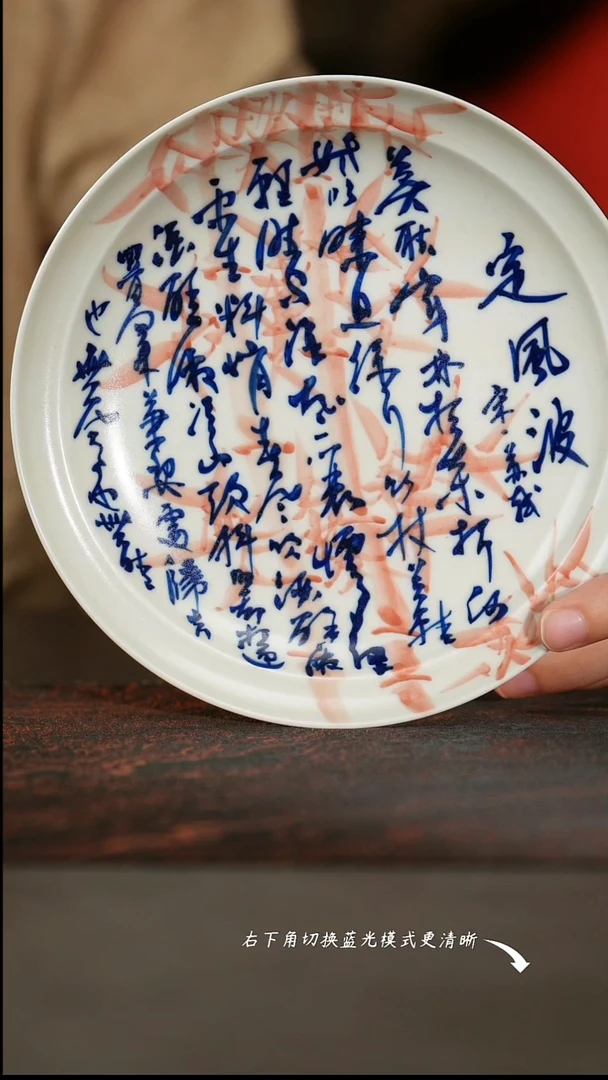 定風波
宋·蘇軾
莫聽穿林打葉
妨吟嘯且徐行竹杖芒鞋
輕勝馬誰怕一蓑煙雨任
平生料峭春風吹酒醒微
冷山頭斜照卻相迎
回首向來蕭瑟處歸去
也無風雨也無晴
右下角切换蓝光模式更清晰